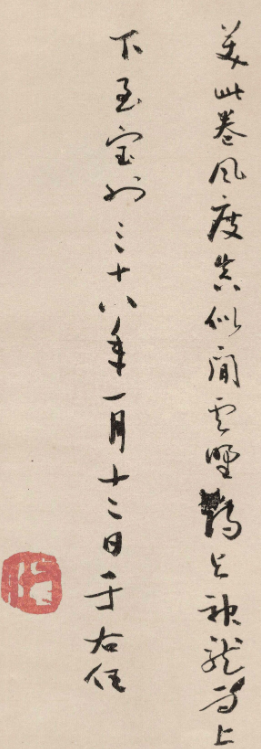 美此卷風度真似閒雲野鶴與神龍子上
下至宝也三十八年一月十二日于右任